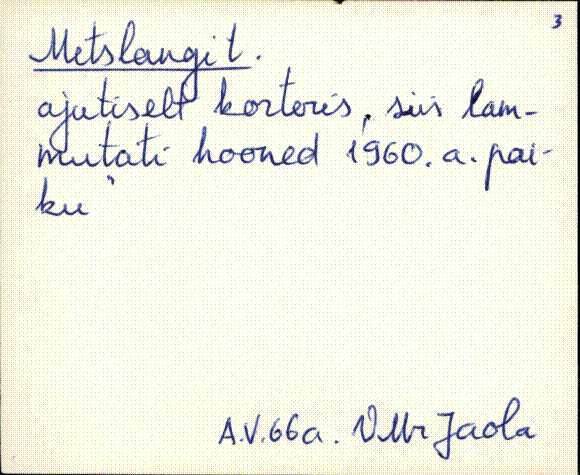 3
Metslangi t.
ajutiselt korteris, siis lam-
mutati hooned 1960. a. pai-
ku"
A.V.66a. VMr Jaola